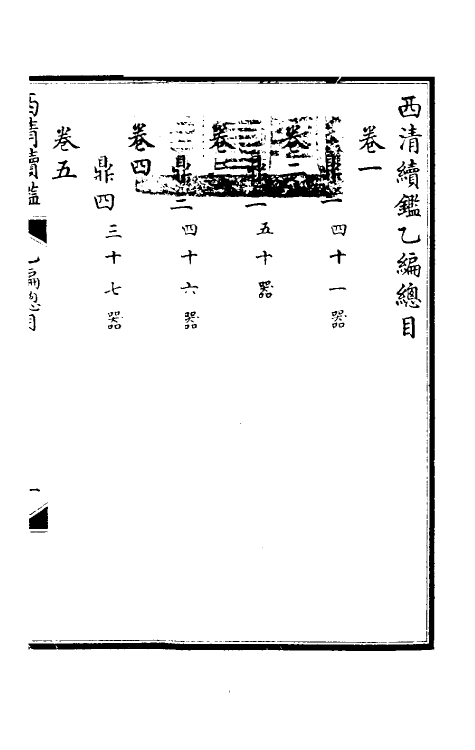 西清續鑑乙編總目
卷一
鼎一 四十一器
卷二
鼎二 五十器
卷三
鼎三 四十六器
卷四
鼎四 三十七器
卷五
西清續鑑 乙編總目 一